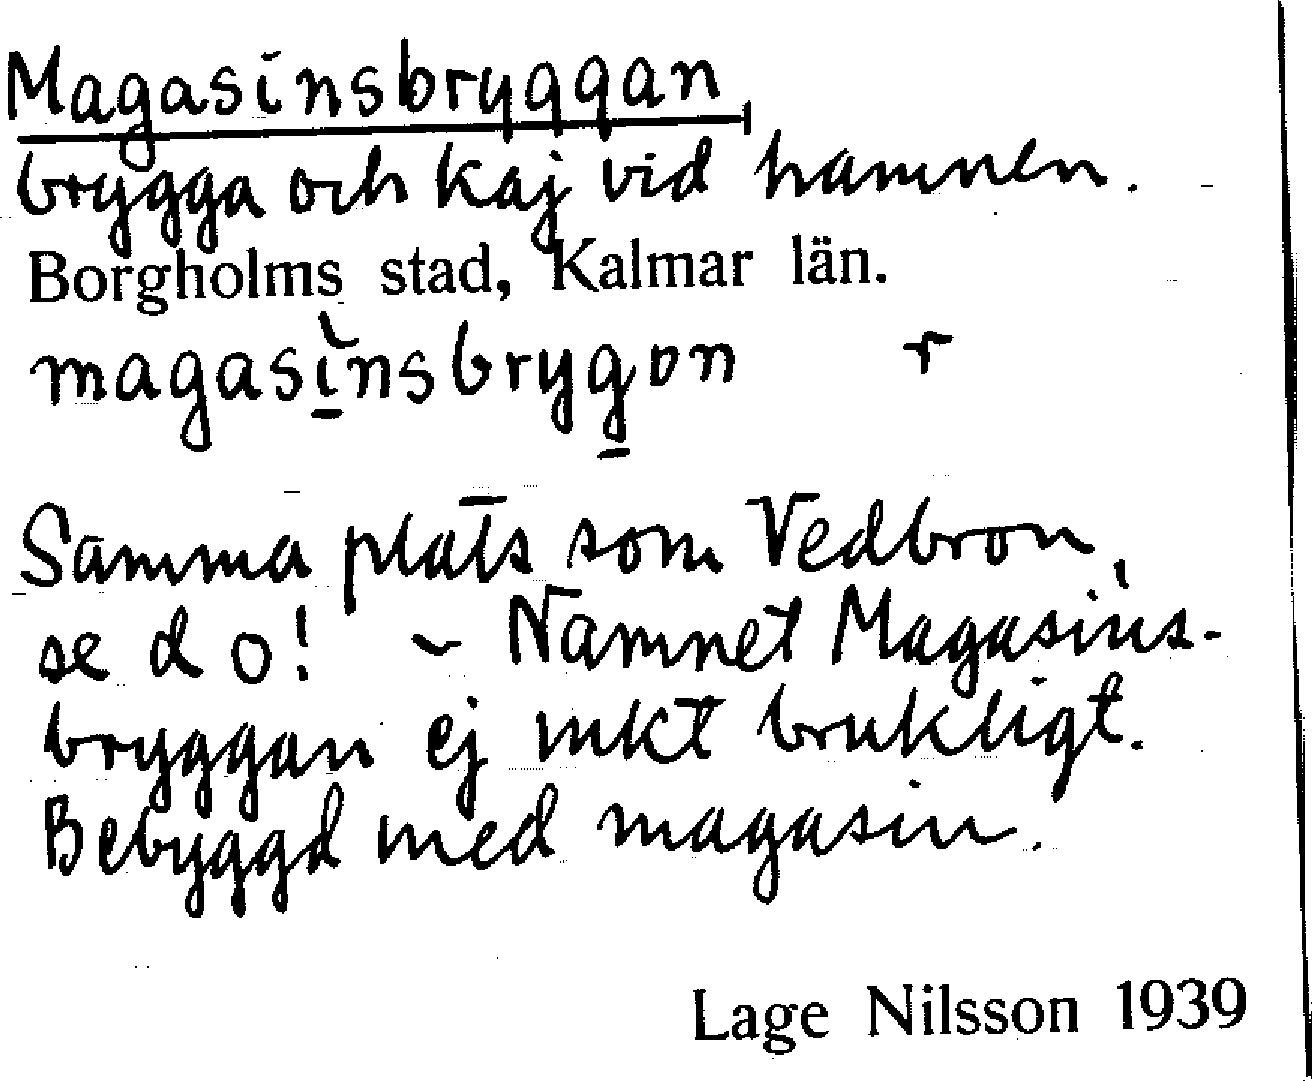 Magasinsbryggan,
brygga och kaj vid hamnen.
Borgholms stad, Kalmar län.
magasìnsbrygon r
Samma plats som Vedbron,
se d o! ~ Namnet Magasins-
bryggan ej mkt brukligt.
Bebyggd med magasin.
Lage Nilsson 1939